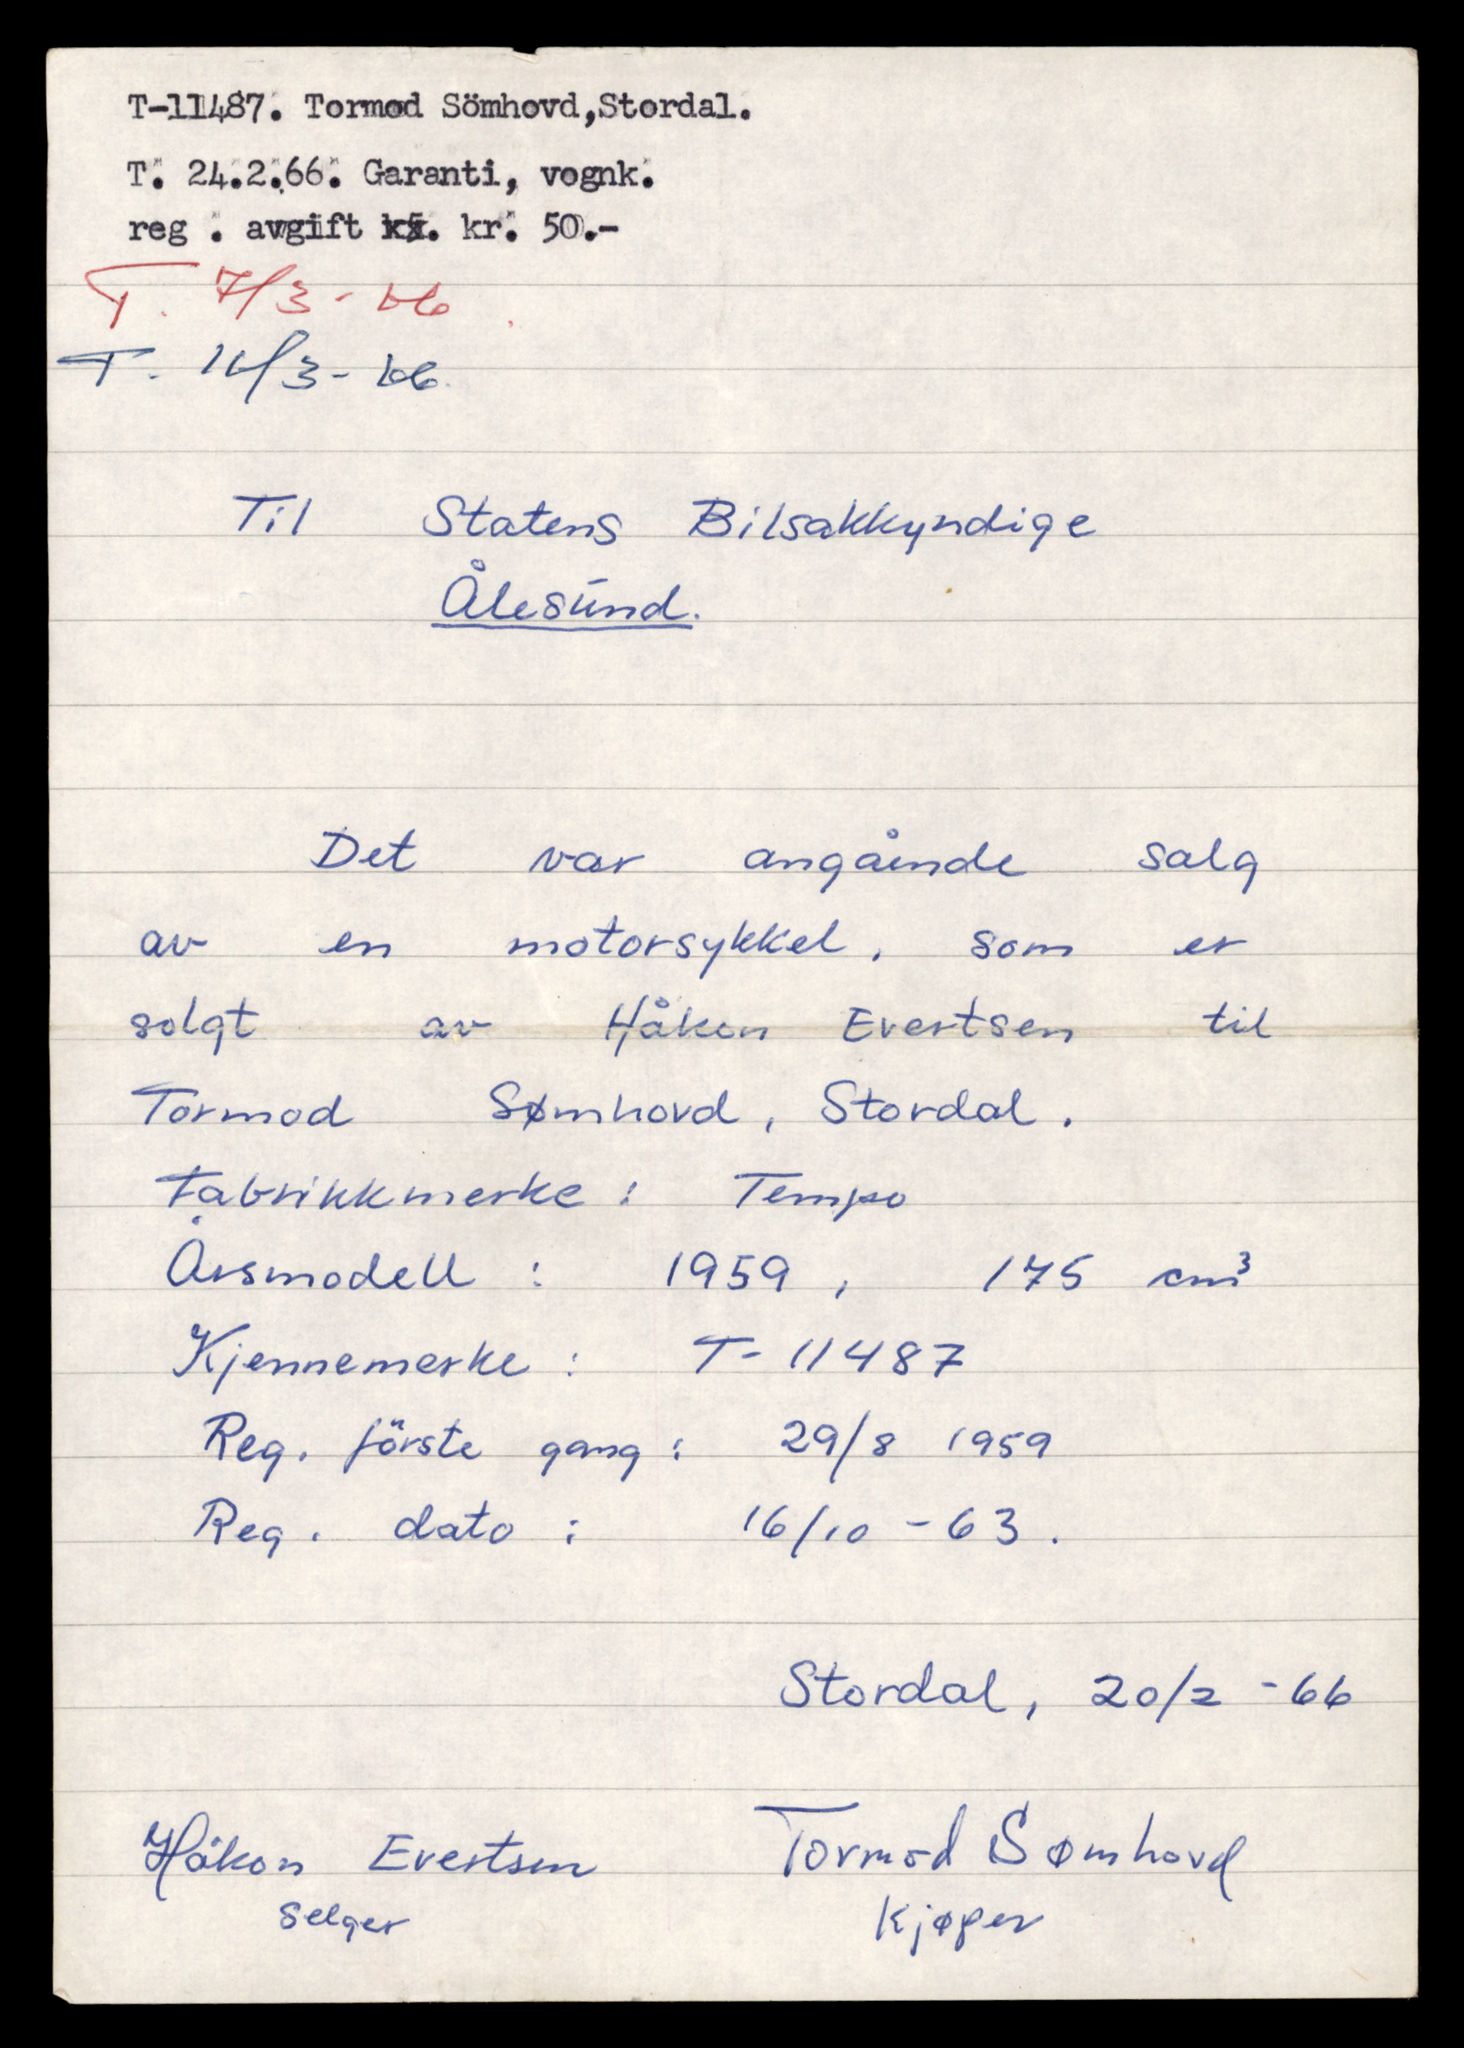 T-11487. Tormod Sömhovd,Stordal.
T. 24.2.66. Garanti, vognk.
reg . avgift kr. 50.-
T. 7/3-66.
T. 16/3-66.
Til Statens Bilsakkyndige
Ålesund.
Det var angående salg
av en motorsykkel, som er
solgt av Håkon Evertsen til
Tormod Sømhovd, Stordal.
Fabrikkmerke: Tempo
Årsmodell: 1959, 175 cm³
Kjennemerke: T-11487
Reg. förste gang: 29/8 1959
Reg. dato: 16/10-63.
Stordal, 20/2-66
Håkon Evertsen Tormod Sømhovd
Selger Kjøper